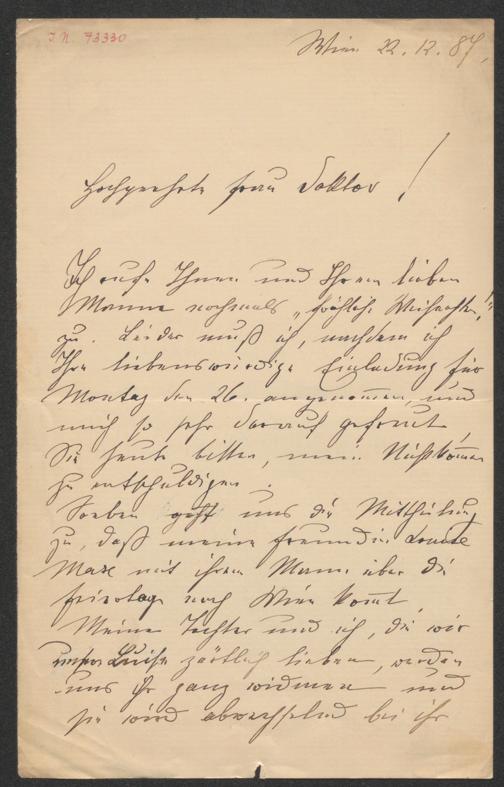 I. N. 73330
Wien 22. 12. 87,
Hochgeehrte Frau Doktor!
Ich rufe Ihnen und Ihrem lieben
Manne nochmals „fröhliche Weihnachten!“
zu. Leider muß ich, nachdem ich
Ihre liebenswürdige Einladung für
Montag den 26. angenommen, und
mich so sehr darauf gefreut,
Sie heute bitten, mein Nichtkommen
zu entschuldigen.
Soeben geht uns die Mittheilung
zu, daß meine Freundin Louise
mit ihrem Mann über die
Feiertage nach Wien komt.
Meine Tochter und ich, die wir
unsere Luise zärtlich lieben, werden
uns ihr ganz widmen und
sie wird abwechselnd bei ihr